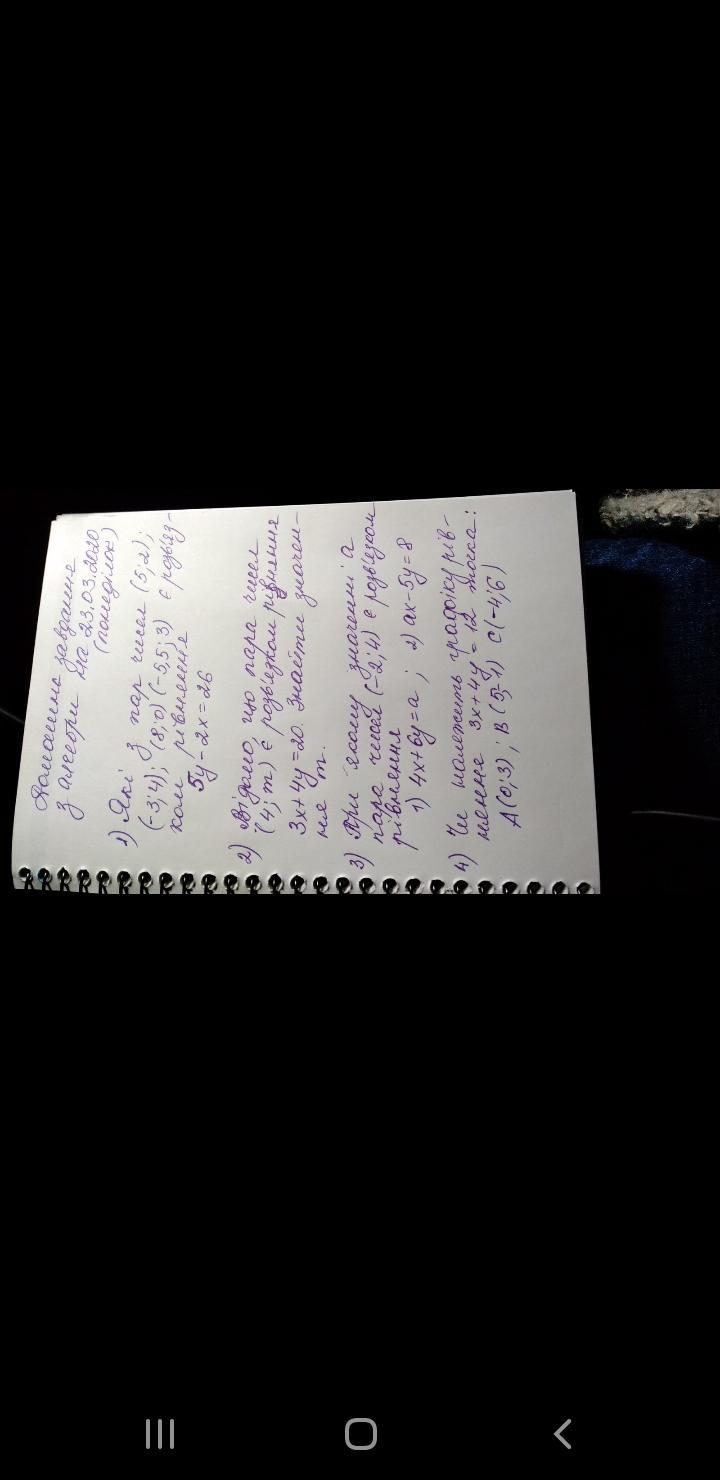 Домашнє завдання
з алгебри на 23.03.2020
(понеділок)
1) Які з пар чисел (5;2);
(-3;4); (8;0) (-5,5;3) є розв'яз-
ком рівняння
5y-2x=26
2) Відомо, що пара чисел
(4;m) є розв'язком рівняння
3x+4y=20. Знайти значен-
ня m.
3) При якому значенні a
пара чисел (-2;4) є розв'язком
рівняння
1) 4x+6y=a; 2) ax-5y=8
4) Чи належить графіку рів-
няння 3x+4y=12 точка:
A(0;3); B(5;-1) C(-4;6)